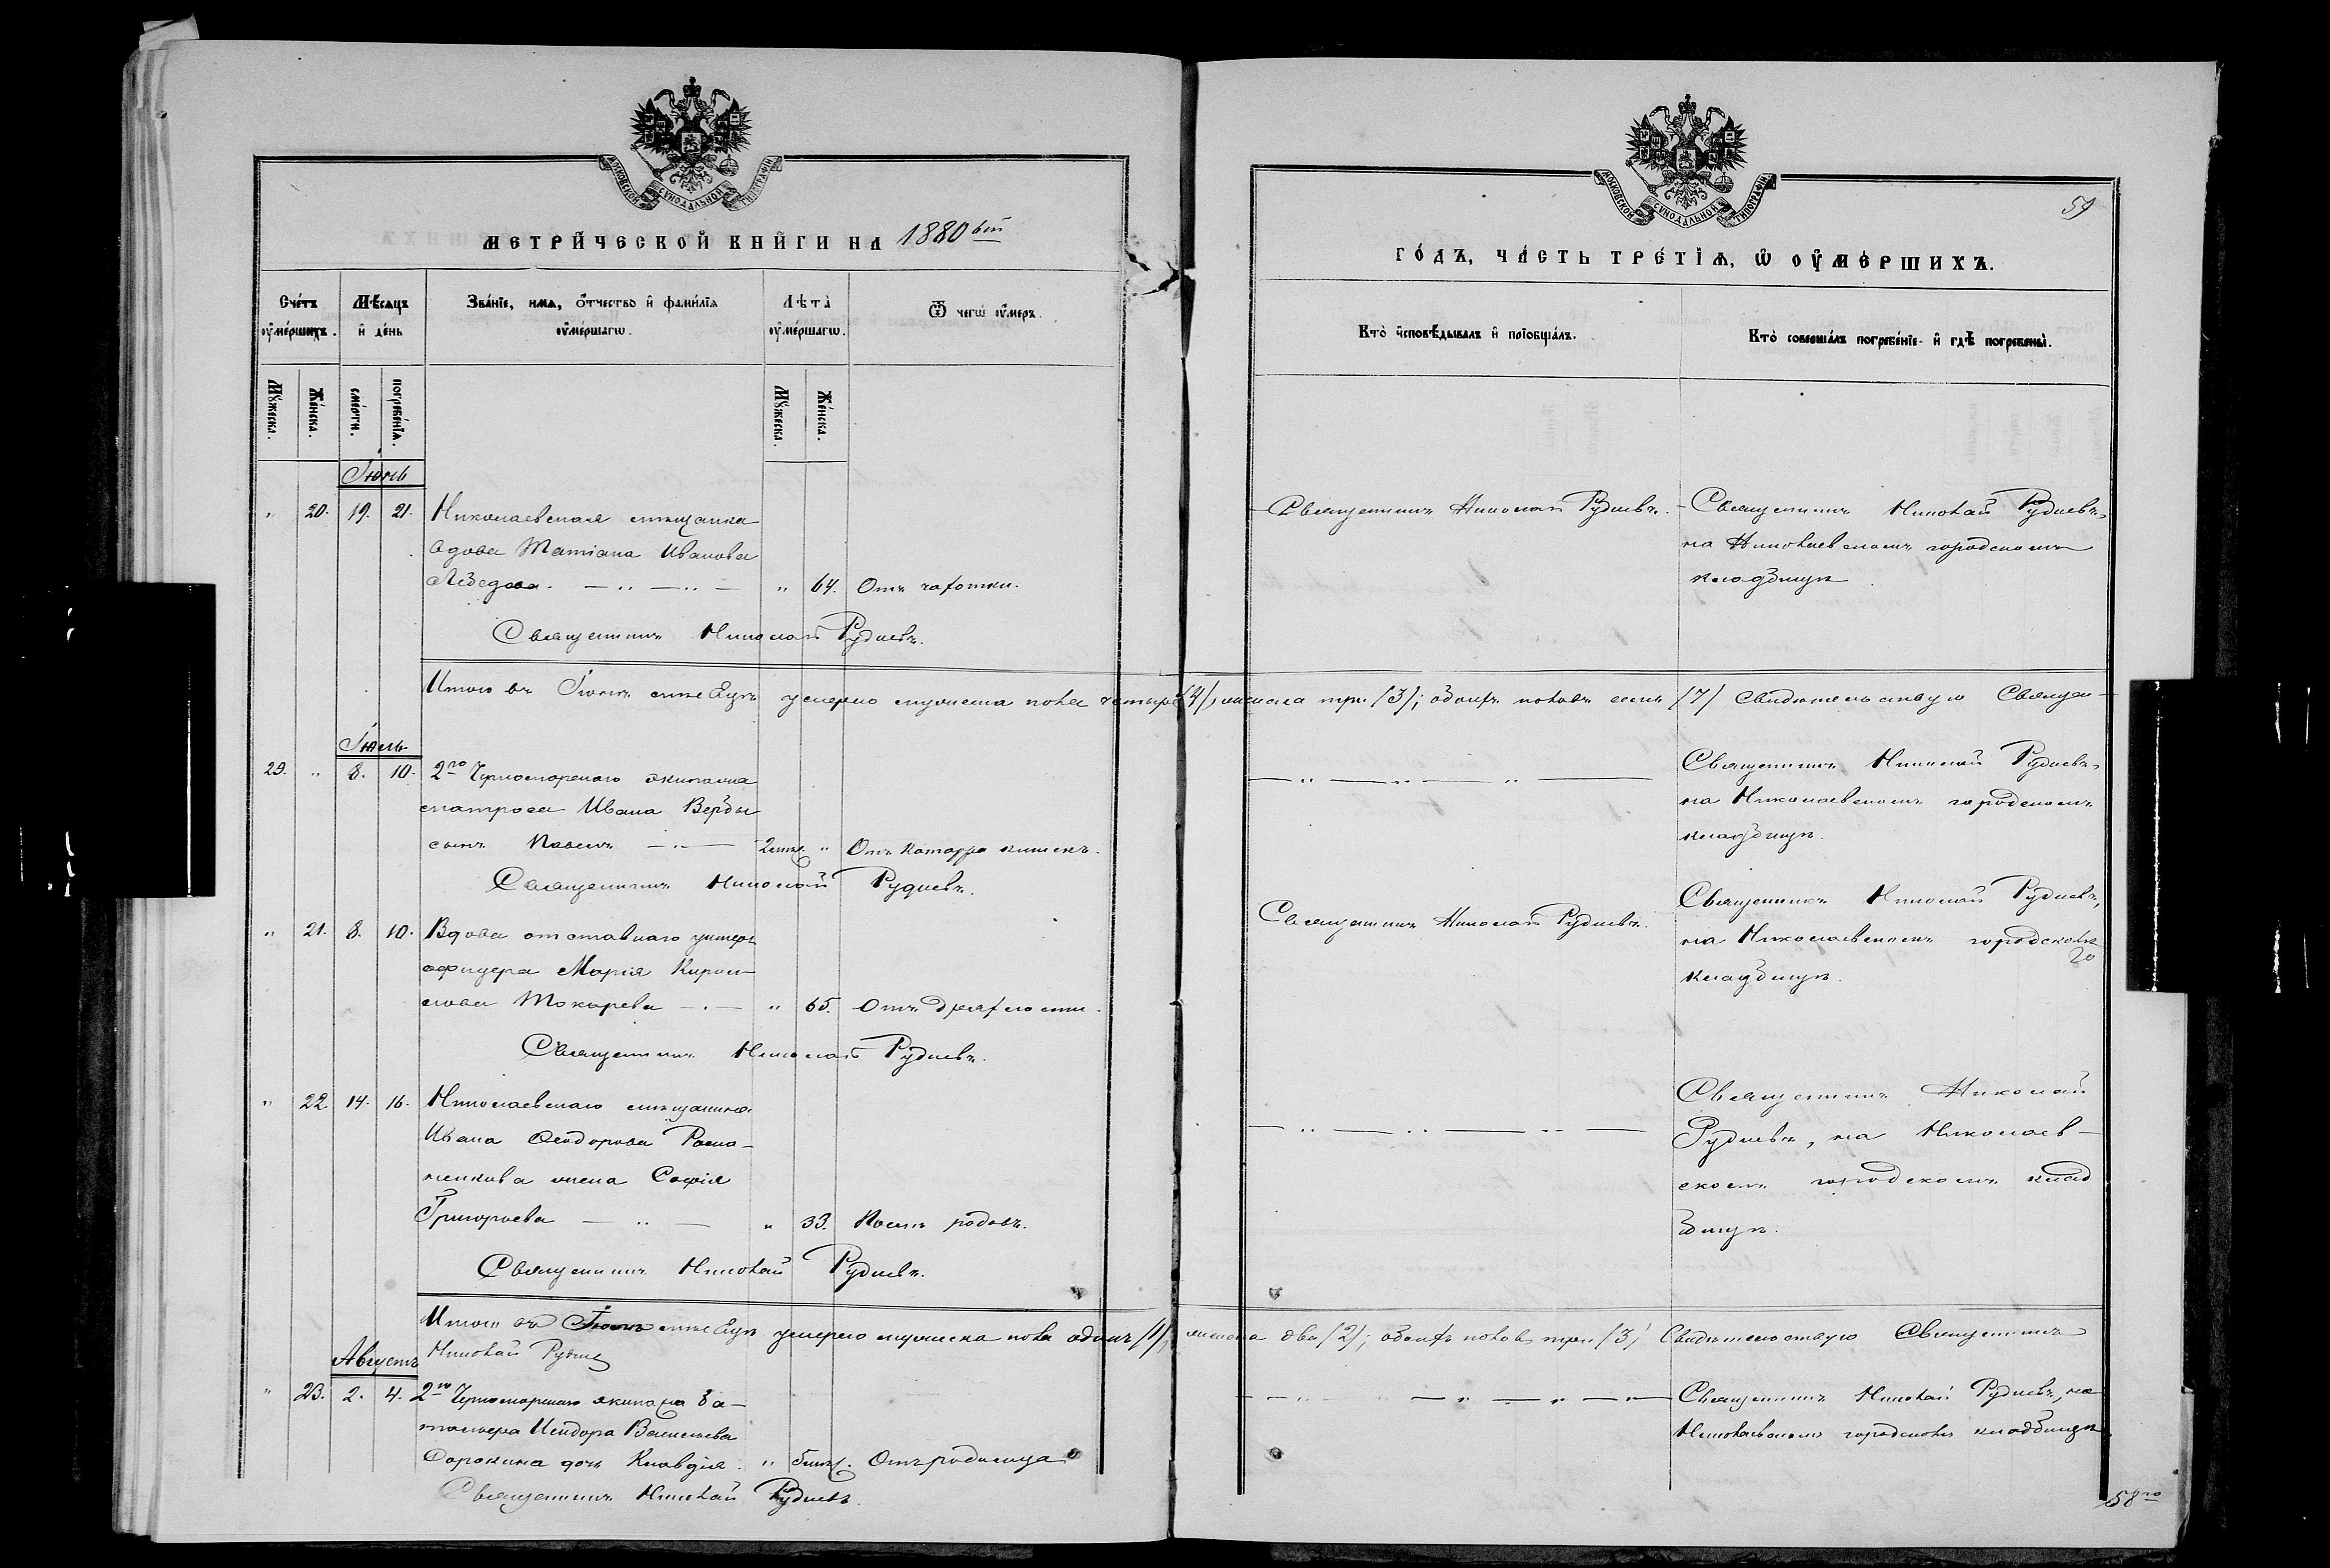 МОСКОВСКОЙ СѴНОДАЛЬНОЙ ТИПОГРАФІИ
МЕТРИЧЕСКОЙ КНИГИ НА 1880 ый
Счетъ оумершихъ.
Мѣсяцъ и день
Званіе, имя, отчество и фамилія оумершагѡ.
Лѣта оумершагѡ.
Ѿ чегѡ оумеръ.
Мужеска.
Женска.
смерти.
погребенія.
Мужеска.
Женска.
Іюнь
" 20. 19. 21. Николаевская мѣщанка
вдова Татіана Иванова
Лебедева. " 64. Отъ чахотки.
Священникъ Николай Рудневъ.
Итого въ Іюнѣ мѣсяцѣ умерло мужеска пола четыре (4), женска три (3); обоихъ половъ семь (7) Свидѣтельствую Священ-
Іюль
29. " 8. 10. 2го Черноморскаго экипажа
матроса Ивана Вербы
сынъ Павелъ 2 мѣс. " Отъ катарра кишекъ.
Священникъ Николай Рудневъ.
" 21. 8. 10. Вдова отставнаго унтеръ
офицера Марія Кирил-
лова Токарева " 65. Отъ дряхлости.
Священникъ Николай Рудневъ.
" 22. 14. 16. Николаевскаго мѣщанина
Ивана Ѳеодорова Рома-
женкова жена Софія
Григорьева " 33. Послѣ родовъ.
Священникъ Николай Рудневъ.
Итого въ Іюлѣ мѣсяцѣ умерло мужеска пола одинъ (1), женска два (2); обоихъ половъ три (3) Свидѣтельствую Священникъ
Николай Рудневъ
Августъ
" 23. 2. 4. 2го Черноморскаго экипажа ба-
талера Исидора Васильева
Сорокина дочь Клавдія. " 5 мѣс. Отъ родимца
Священникъ Николай Рудневъ.
МОСКОВСКОЙ СѴНОДАЛЬНОЙ ТИПОГРАФІИ
59
ГОДЪ, ЧАСТЬ ТРЕТІЯ, Ѡ ОУМЕРШИХЪ.
Кто исповѣдывалъ и пріобщалъ.
Кто совершалъ погребеніе и гдѣ погребены.
Священникъ Николай Рудневъ.
Священникъ Николай Рудневъ,
на Николаевскомъ городскомъ
кладбищѣ.
Священникъ Николай Рудневъ,
на Николаевскомъ городскомъ
кладбищѣ.
Священникъ Николай Рудневъ.
Священникъ Николай Рудневъ,
на Николаевскомъ городскомъ
кладбищѣ.
Священникъ Николай
Рудневъ, на Николаев-
скомъ городскомъ клад
бищѣ.
Священникъ Николай Рудневъ, на
Николаевскомъ городскомъ кладбищѣ.
58 го